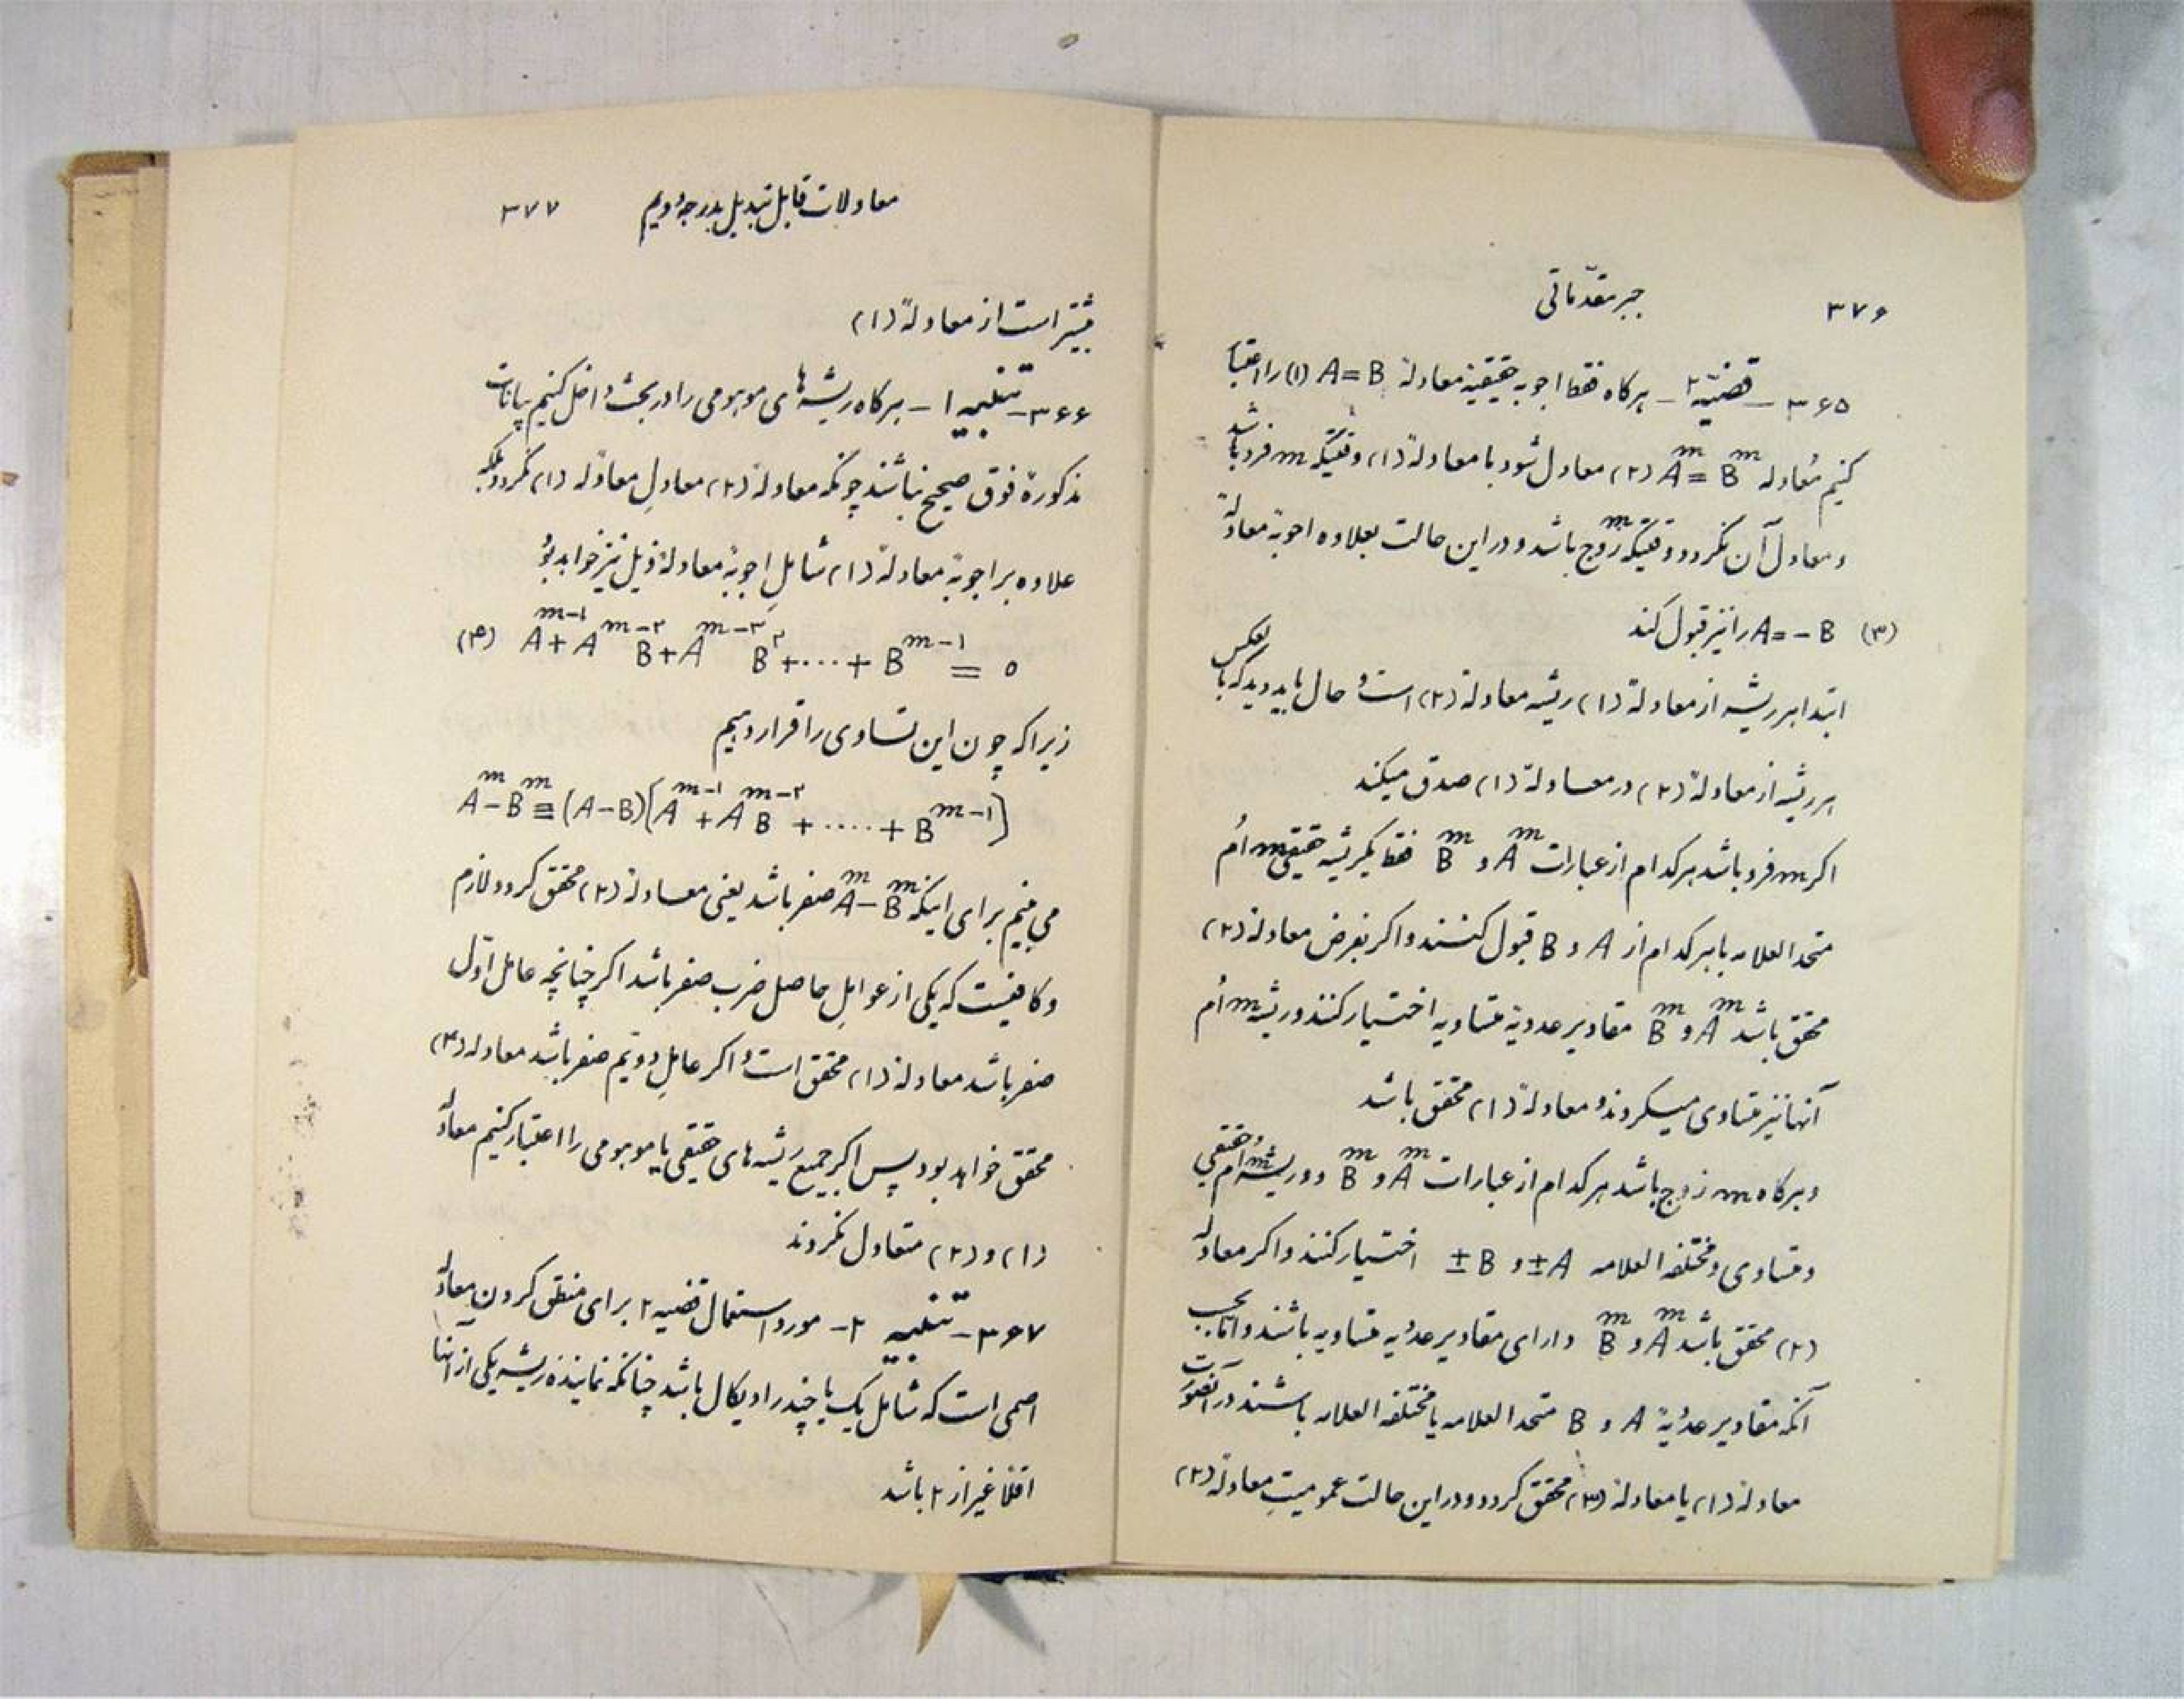 ۳۷۶ جبر مقدّماتی
۳۶۵ - قضیّه ۲ - هرگاه فقط اجوبه حقیقیّه معادلهٔ A = B (۱) را اعتبار
کنیم مُعادله Aᵐ = Bᵐ (۲) معادل شود با معادلهٔ (۱) وقتیکه m فرد باشد
و معادل آن نگردد وقتیکه m زوج باشد و در این حالت بعلاوه اجوبهٔ معادلهٔ
(۳) A = - B را نیز قبول کند
ابتدا هر ریشه از معادلهٔ (۱) ریشه معادلهٔ (۲) است و حال باید دید که بالعکس
هر ریشه از معادلهٔ (۲) در معادلهٔ (۱) صدق میکند
اگر m فرد باشد هر کدام از عبارات Aᵐ و Bᵐ فقط یکریشه حقیقی m اُم
متحد العلامه با هر کدام از A و B قبول کنند و اگر بفرض معادلهٔ (۲)
محقق باشد Aᵐ و Bᵐ مقادیر عددیهٔ متساویه اختیار کنند و ریشه m اُم
آنها نیز متساوی میگردند و معادلهٔ (۱) محقق باشد
و هرگاه m زوج باشد هر کدام از عبارات Aᵐ و Bᵐ دو ریشه m اُم حقیقی
و متساوی و مختلف العلامه ±A و ±B اختیار کنند و اگر معادلهٔ
(۲) محقق باشد Aᵐ و Bᵐ دارای مقادیر عددیه متساویه باشند و اما بحسب
آنکه مقادیر عددیهٔ A و B متحد العلامه یا مختلف العلامه باشند در آنصورت
معادلهٔ (۱) یا معادلهٔ (۳) محقق گردد و در این حالت عمومیتِ معادلهٔ (۲)
معادلات قابل تبدیل بدرجه دویم ۳۷۷
بیشتر است از معادلهٔ (۱)
۳۶۶ - تنبیه ۱ - هرگاه ریشه‌های موهومی را در بحث داخل کنیم بیانات
مذکورهٔ فوق صحیح نباشند چونکه معادلهٔ (۲) معادلِ معادله (۱) نگردد بلکه
علاوه بر اجوبهٔ معادلهٔ (۱) شاملِ اجوبهٔ معادلهٔ ذیل نیز خواهد بود
(۴) Aᵐ⁻¹ + Aᵐ⁻²B + Aᵐ⁻³B² + ···· + Bᵐ⁻¹ = 0
زیرا که چون این تساوی را قرار دهیم
Aᵐ - Bᵐ ≡ (A - B)[Aᵐ⁻¹ + Aᵐ⁻²B + ····· + Bᵐ⁻¹]
می‌بینیم برای اینکه Aᵐ - Bᵐ صفر باشد یعنی معادلهٔ (۲) محقق گردد لازم
و کافیست که یکی از عواملِ حاصل ضرب صفر باشد اگر چنانچه عامل اوّل
صفر باشد معادلهٔ (۱) محقق است و اگر عاملِ دویّم صفر باشد معادله (۴)
محقق خواهد بود پس اگر جمیع ریشه‌های حقیقی یا موهومی را اعتبار کنیم معادلهٔ
(۱) و (۲) متعادل نگردند
۳۶۷ - تنبیه ۲ - مورد استعمال قضیه ۲ برای منطق کردن معادلهٔ
اصمی است که شامل یک یا چند رادیکال باشد چنانکه نماینده ریشه یکی از آنها
اقلا غیر از ۲ باشد